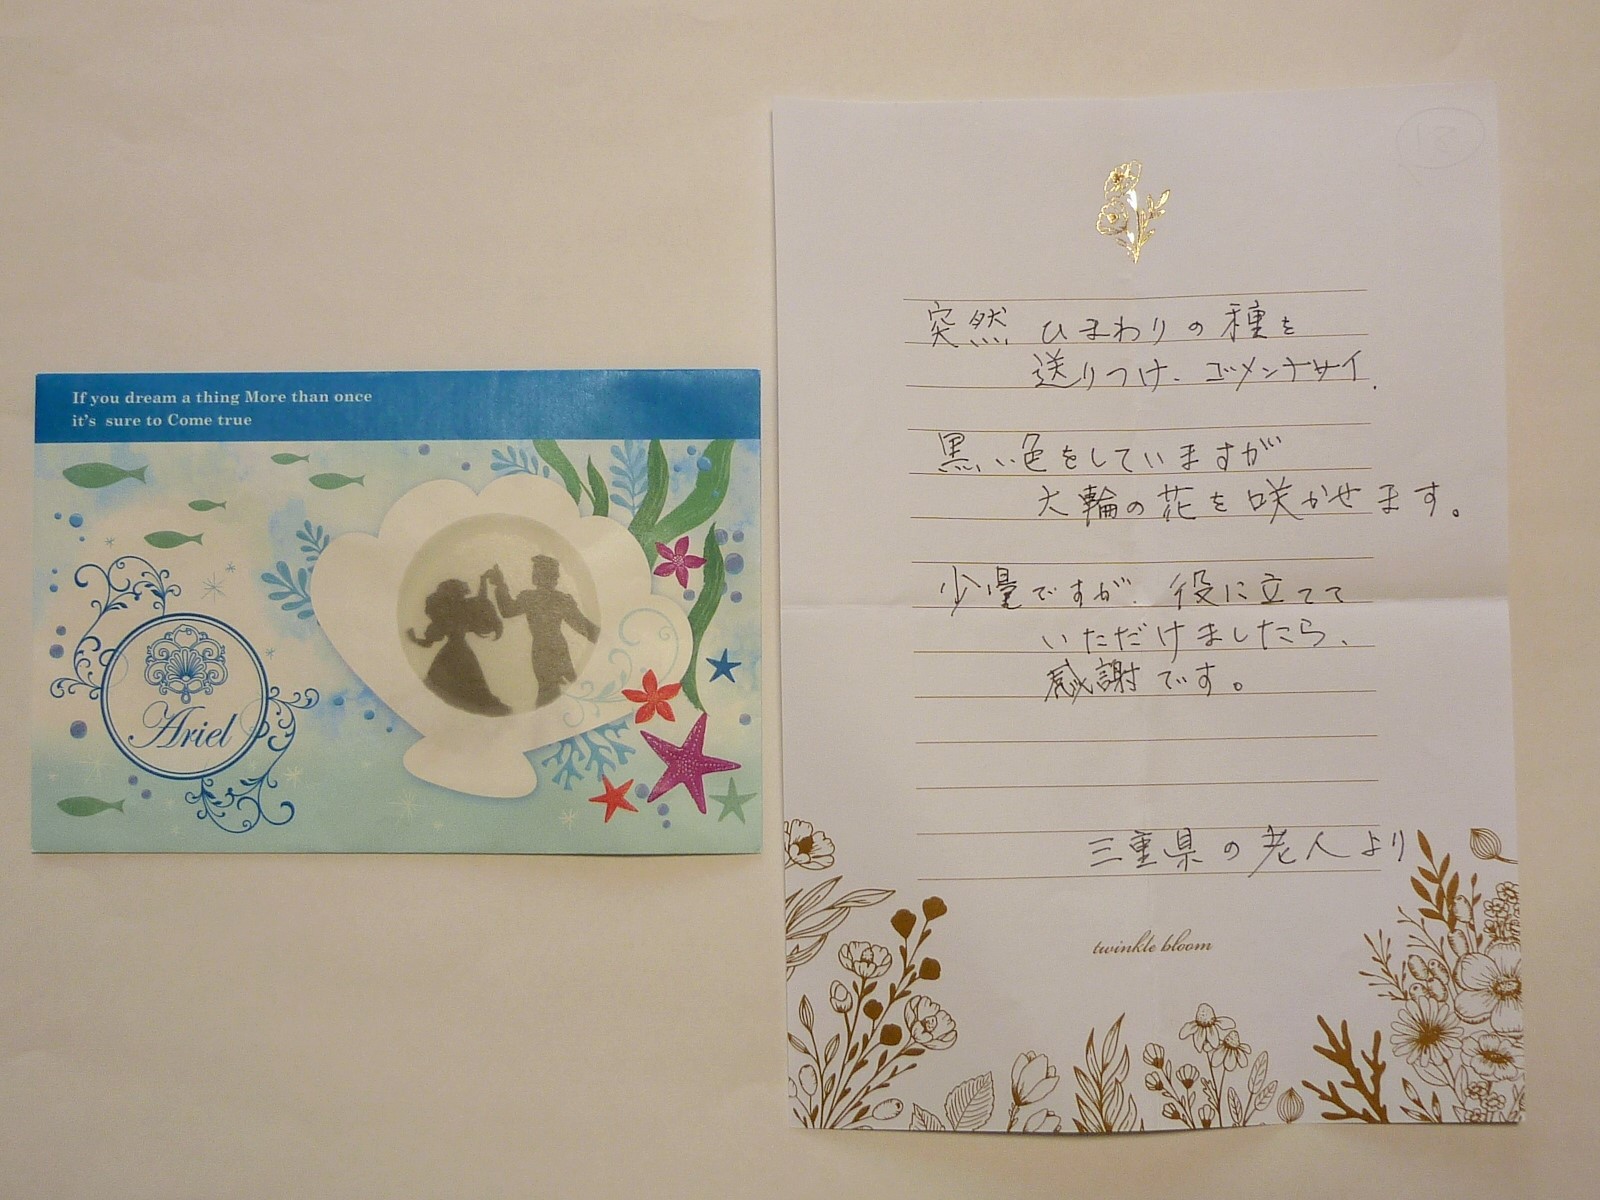 If you dream a thing More than once
it's sure to Come true
Ariel
突然 ひまわりの種を
送りつけ、ゴメンナサイ.
黒い色をしていますが
大輪の花を咲かせます。
少量ですが、役に立てて
いただけましたら、
感謝です。
三重県の老人より
twinkle bloom